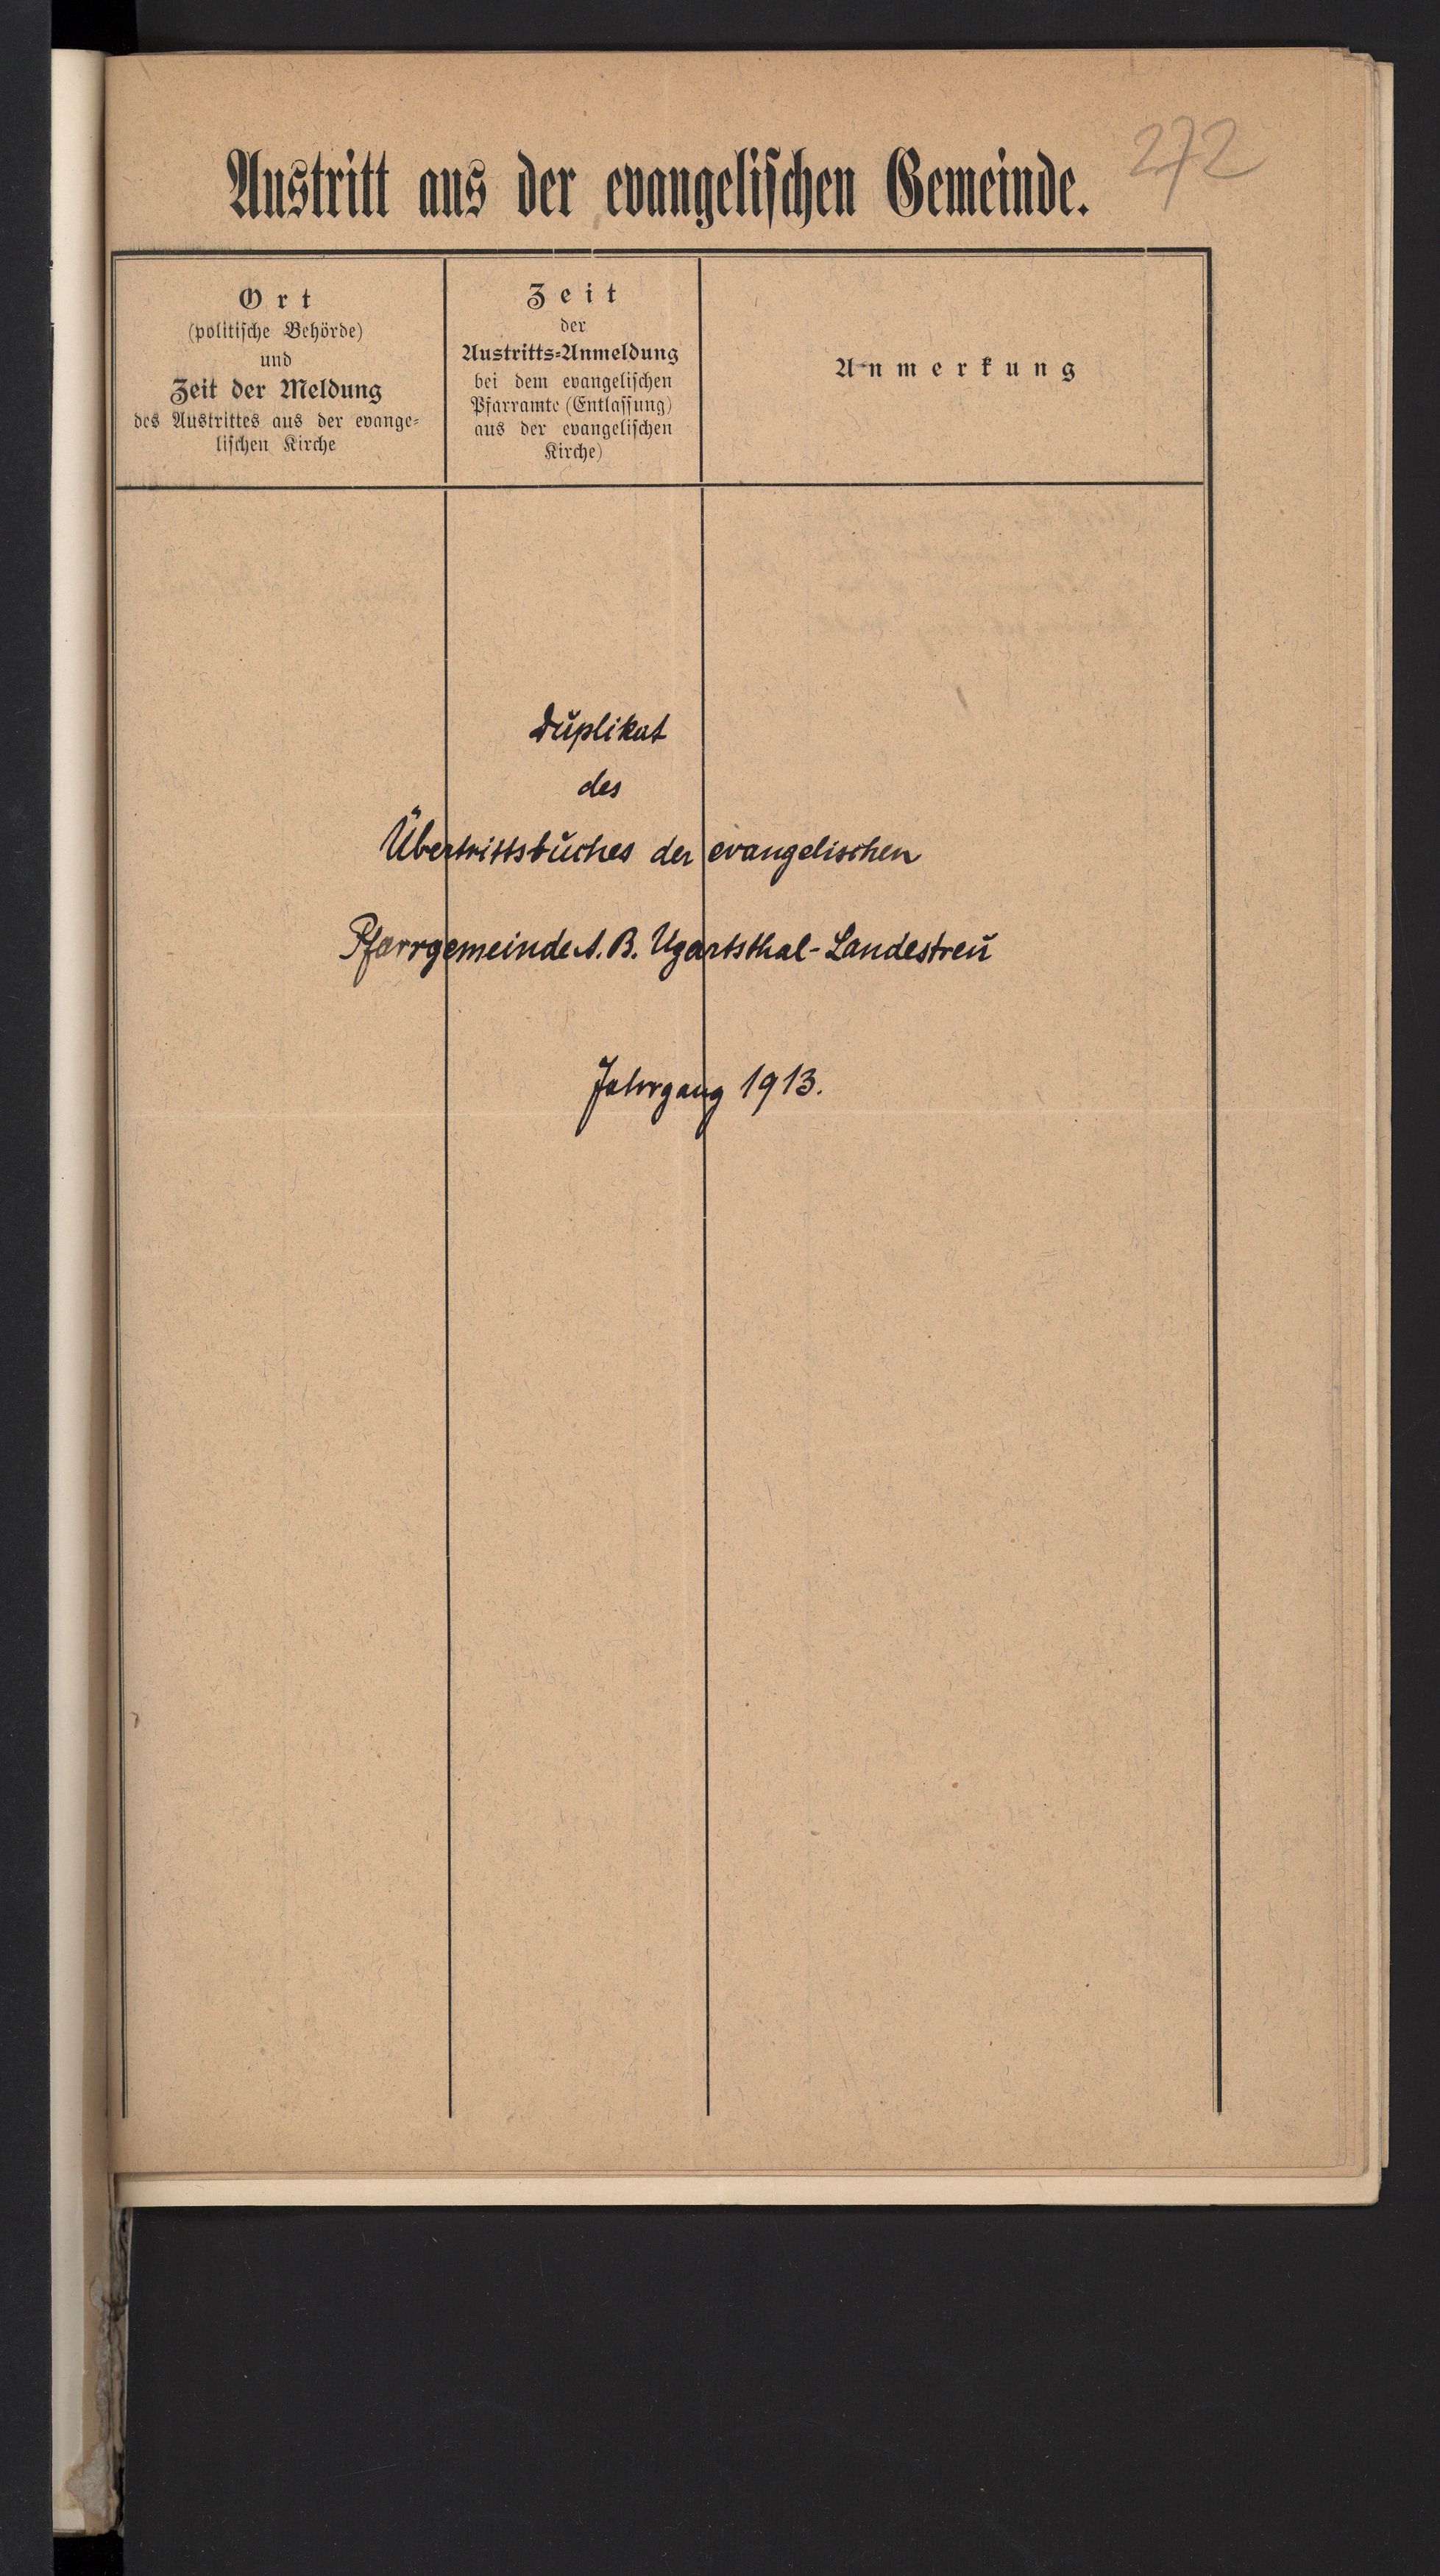 272
Austritt aus der evangelischen Gemeinde.
Ort
(politische Behörde)
und
Zeit der Meldung
des Austrittes aus der evange-
lischen Kirche
Zeit
der
Austritts-Anmeldung
bei dem evangelischen
Pfarramte (Entlassung)
aus der evangelischen
Kirche)
Anmerkung
Duplikat
des
Übertrittsbuches der evangelischen
Pfarrgemeinde A. B. Ugartsthal-Landestreu
Jahrgang 1913.